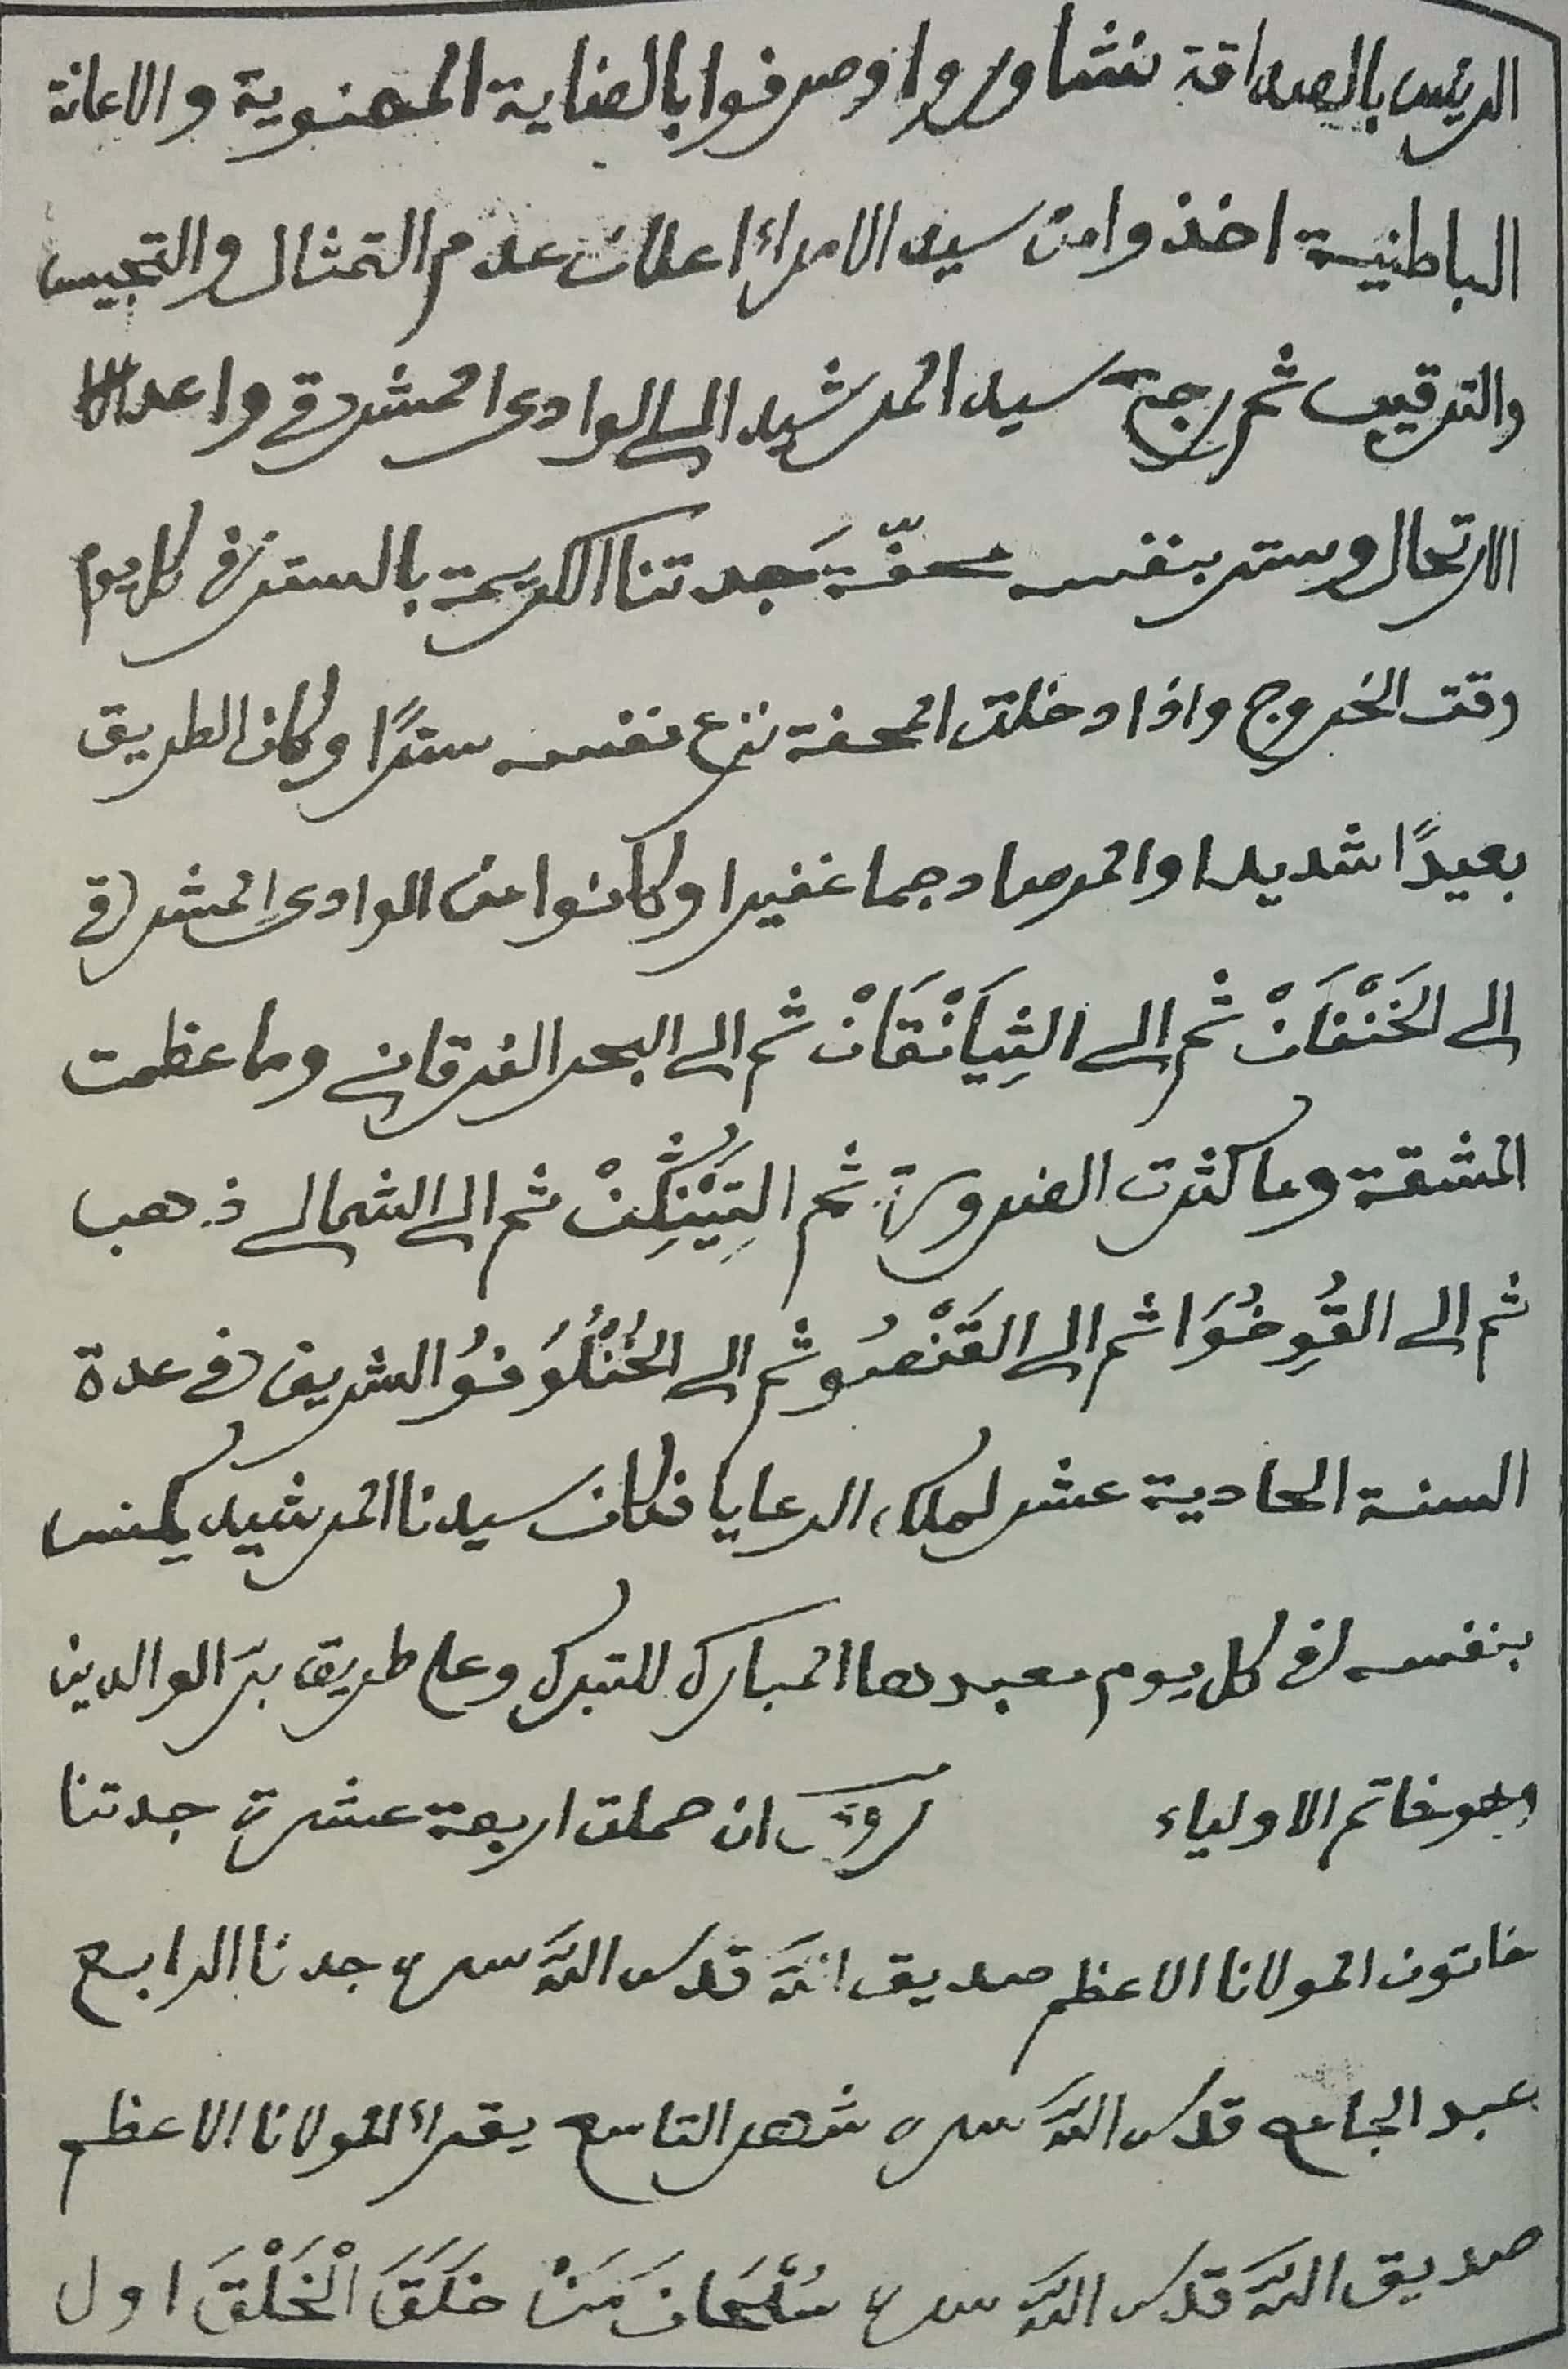 الريس بالصداقة تشاوروا وصرفوا بالعناية المعنوية والاعانة
الباطنية اخذوا من سيد الامراء اعلان عدم التمثال والتجيس
والترقيب ثم رجع سيد المرشيد الى الوادى المشرقي واعد
الارتحال وستر بنفسه محفّة جَدتنا الكريمة بالستر في كل يوم
وقت الخروج واذا دخلت المحفة نزع نفسه سترًا وكان الطريق
بعيدًا شديدا والمرصاد جما غفيرا وكانوا من الوادى المشرقي
الى الخَنْفَانْ ثم الى الثِيَانْقَانْ ثم الى البحر الفرقاني وما عظمت
المشقة وما كثرت الضرورة ثم ثم الى الشمالى ذهب
ثم الى القُوِخُوَا ثم الى القَنْصُو ثم الى الخُنْلُوَفُو الشريف في عدة
السنة الحادية عشر لملاء الرعايا فكان سيدنا المرشيد يكنس
بنفسه في كل يوم معبدها المبارك للتبرك وعلى طريق برّ الوالدين
وهو خاتم الاولياء روي ان حملت اربعة عشرة جدتنا
خاتون المولانا الاعظم صديق الله قدس الله سره جدنا الرابع
عبد الجامع قدس الله سره شهر التاسع يقرأ المولانا الاعظم
صديق الله قدس الله سره سُبْحَانَ مَنْ خَلَقَ الْخَلْقَ اول